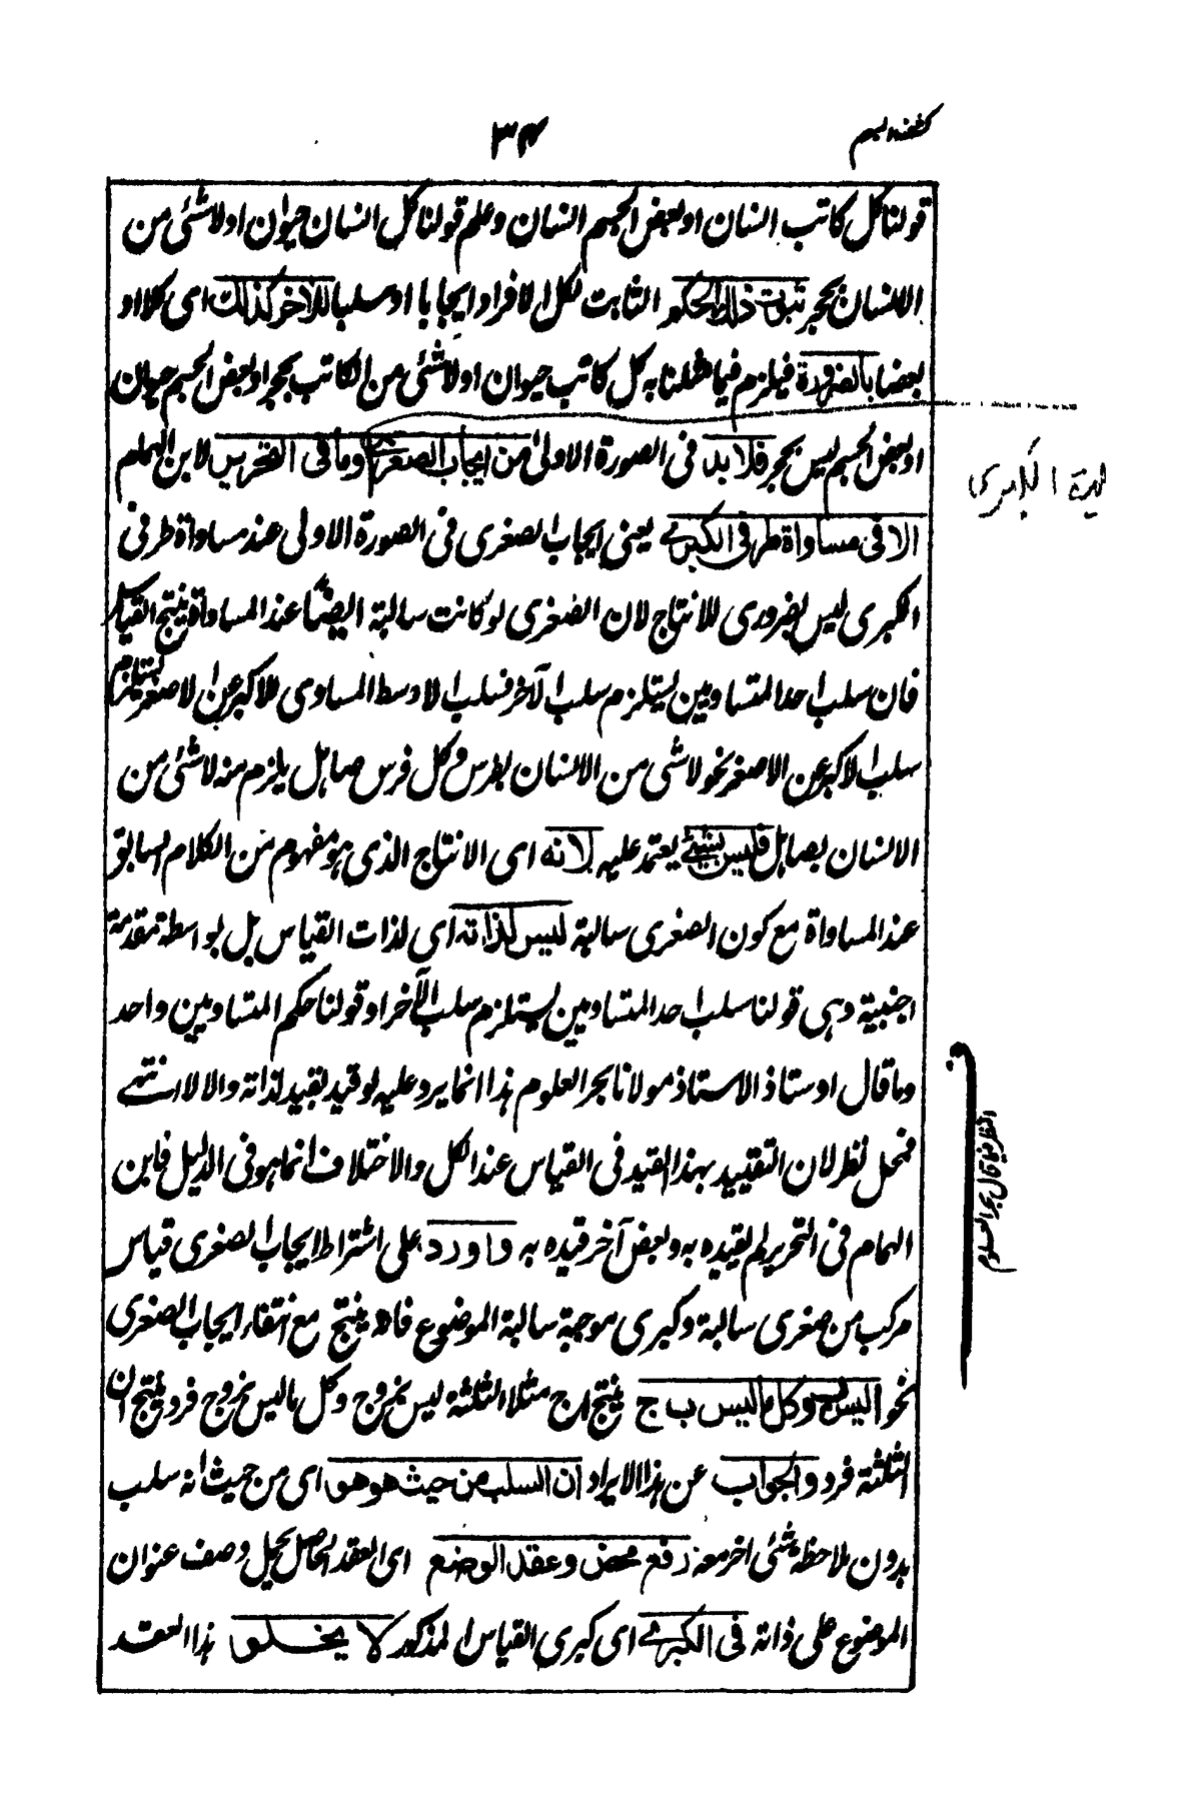 كشف المبهم
٣٤
قولنا كل كاتب انسان او بعض الجسم انسان وعلم قولنا كل انسان حيوان او لا شئ من
الانسان بحجر ثبوت ذلك الحكم الثابت لكل الافراد ايجابا او سلبا للاخر كذلك اى كلا او
بعضا بالضرورة فيلزم فيما مثلنا به كل كاتب حيوان او لا شئ من الكاتب بحجر او بعض الجسم حيوان
او بعض الجسم ليس بحجر فلا بد فى الصورة الاولى من ايجاب الصغرى وما فى التحرير لابن الهمام
الا فى مساواة طرفى الكبرى يعنى ايجاب الصغرى فى الصورة الاولى عند مساواة طرفى
الكبرى ليس بضرورى للانتاج لان الصغرى لو كانت سالبة ايضا عند المساواة ينتج القياس
فان سلب احد المتساويين يستلزم سلب الآخر فسلب الاوسط المساوى للاكبر عن الاصغر يستلزم
سلب الاكبر عن الاصغر نحو لا شى من الانسان بفرس وكل فرس صاهل يلزم منه لا شئ من
الانسان بصاهل فليس بشئ يعتمد عليه لانه اى الانتاج الذى هو مفهوم من الكلام السابق
عند المساواة مع كون الصغرى سالبة ليس لذاته اى لذات القياس بل بواسطة مقدمة
اجنبية وهى قولنا سلب احد المتساويين يستلزم سلب الآخر او قولنا حكم المتساويين واحد
وما قال اوستاذ الاستاذ مولانا بحر العلوم هذا انما يرد عليه لو قيد بقيد لذاته والا لا انتهى
فمحل نظر لان التقييد بهذا القيد فى القياس عند الكل والاختلاف انما هو فى الدليل فابن
الهمام فى التحرير لم يقيده به وبعض آخر قيده به واورد على اشتراط ايجاب الصغرى قياس
مركب من صغرى سالبة وكبرى موجبة سالبة الموضوع فانه ينتج مع انتفاء ايجاب الصغرى
نحو اليس ب وكل ما ليس ب ج ينتج ا ج مثلا الثلثة ليس بزوج وكل ما ليس بزوج فرد ينتج ان
الثلثة فرد والجواب عن هذا الايراد ان السلب من حيث هو هو اى من حيث انه سلب
بدون ملاحظة شئ اخر معه رفع محض وعقد الوضع اى العقد الحاصل بحمل وصف عنوان
الموضوع على ذاته فى الكبرى اى كبرى القياس المذكور لا يخلو هذا العقد
النظر فيما قال بحر العلوم